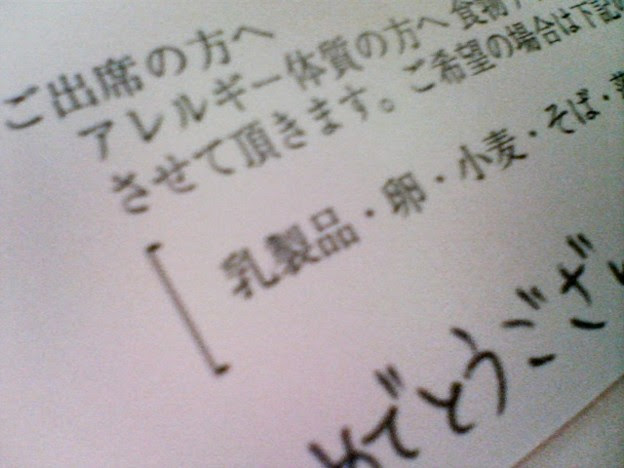 ご出席の方へ
アレルギー体質の方へ 食物ア
させて頂きます。ご希望の場合は下記の
乳製品・卵・小麦・そば・落
めでとうござい